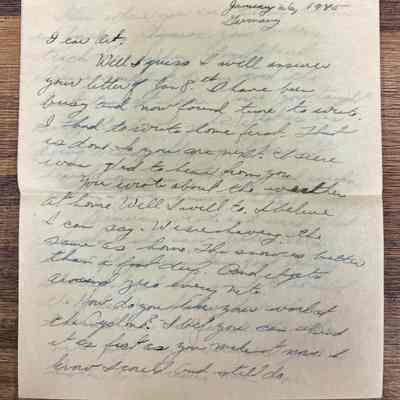 January 26, 1945
Germany
Dear Art,
Well I guess I will answer
your letter of Jan 8th I have been
busy and now found time to write.
I had to write home first. That
is done so you are next. I sure
was glad to hear from you.
You wrote about the weather
at home Well I will to. I believe
I can say. We are having the
same as home. The snow is better
than a foot deep. And it gets
around zero every nite.
How do you like your work at
the ? I bet you can
it as fast as you make it now. I
know I could and still do.